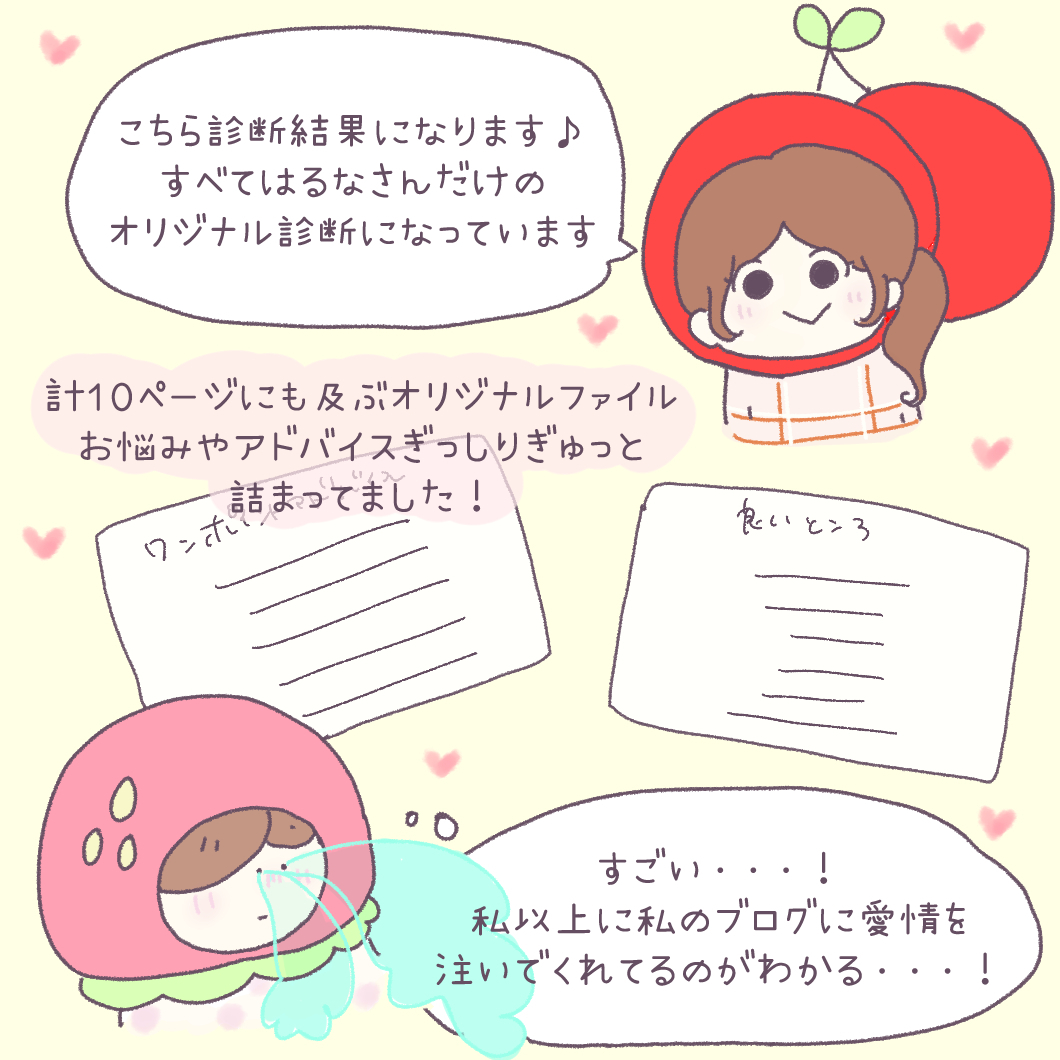 こちら診断結果になります♪
すべてはるなさんだけの
オリジナル診断になっています
計10ページにも及ぶオリジナルファイル
お悩みやアドバイスぎっしりぎゅっと
詰まってました！
ワンポイントアドバイス
良いところ
すごい・・・！
私以上に私のブログに愛情を
注いでくれてるのがわかる・・・！